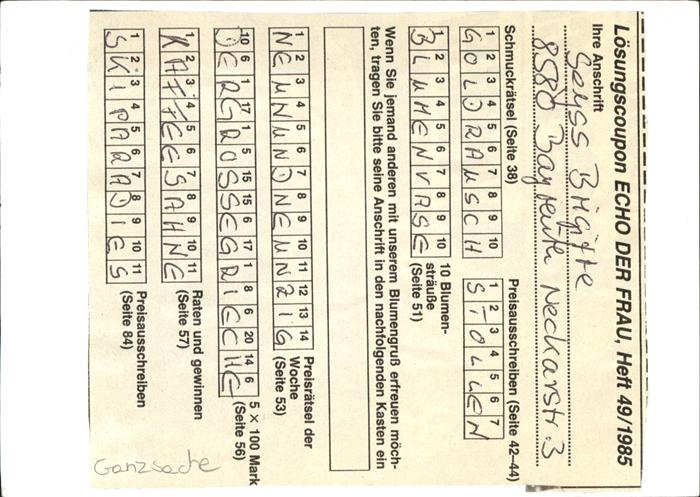 Lösungscoupon ECHO DER FRAU, Heft 49/1985
Ihre Anschrift
Brigitte
8580 Bayreuth Neckarstr. 3
Schmuckrätsel (Seite 38)
1 2 3 4 5 6 7 8 9 10
GOLDRAUSCH
Preisausschreiben (Seite 42–44)
1 2 3 4 5 6 7
STOLLEN
1 2 3 4 5 6 7 8 9 10
BLUMENVASE
10 Blumen-
sträuße
(Seite 51)
Wenn Sie jemand anderen mit unserem Blumengruß erfreuen möch-
ten, tragen Sie bitte seine Anschrift in den nachfolgenden Kasten ein
1 2 3 4 5 6 7 8 9 10 11 12 13 14
NEUNUNDNEUNZIG
Preisrätsel der
Woche
(Seite 53)
10 6 1 17 1 5 15 15 6 17 1 8 6 20 14 6
DERGROSSEGRIECHE
5 × 100 Mark
(Seite 56)
1 2 3 4 5 6 7 8 9 10 11
KAFFEESAHNE
Raten und gewinnen
(Seite 57)
1 2 3 4 5 6 7 8 9 10 11
SKIPARADIES
Preisausschreiben
(Seite 84)
Ganzsache